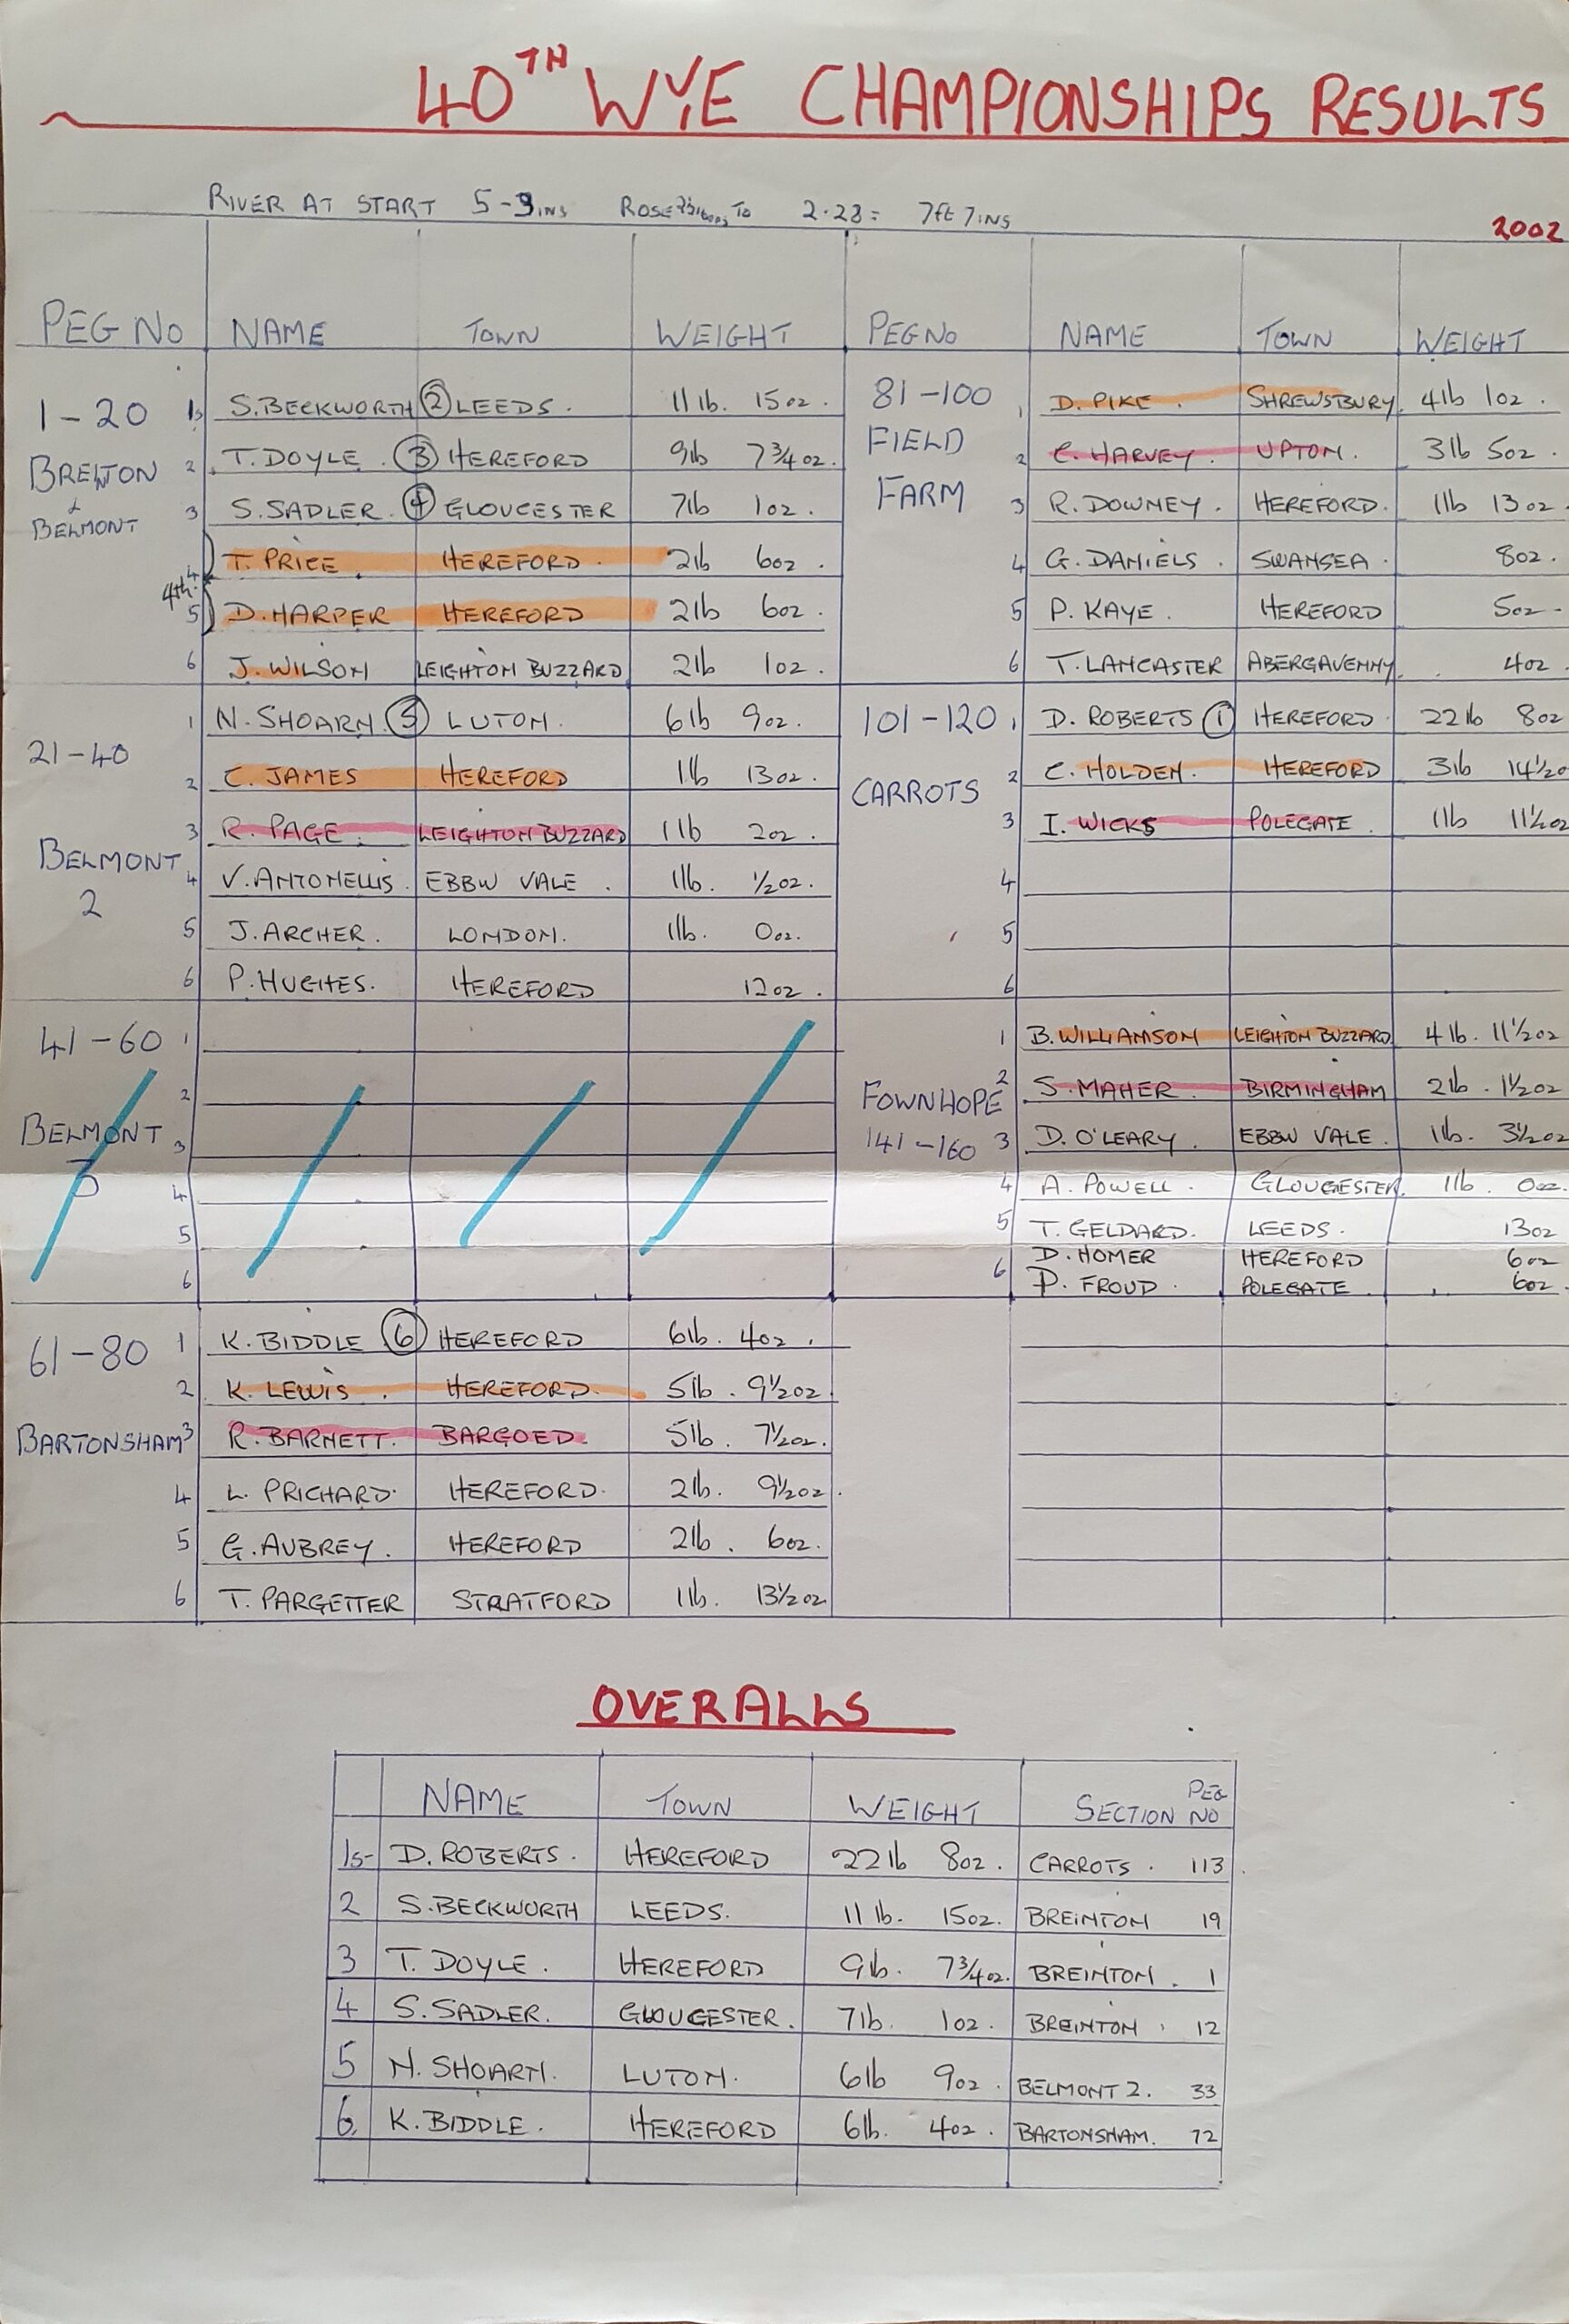 40TH WYE CHAMPIONSHIPS RESULTS
RIVER AT START 5-9INS ROSE TO 2.28 = 7ft 7INS
2002
PEG NO NAME TOWN WEIGHT
1-20 BREINTON & BELMONT
1s S.BECKWORTH ② LEEDS. 11 lb. 15oz.
2. T. DOYLE. ③ HEREFORD 9lb 7 3/4 oz.
3 S. SADLER. ④ GLOUCESTER 7lb 1oz.
4th
4 T. PRICE. HEREFORD. 2lb 6oz.
5 D. HARPER HEREFORD 2lb 6oz.
6 J. WILSON LEIGHTON BUZZARD 2lb 1oz.
21-40 BELMONT 2
1 N. SHOARN ⑤ LUTON. 6lb 9oz.
2 C. JAMES HEREFORD 1lb 13oz.
3 R. PAGE. LEIGHTON BUZZARD 1lb 2oz.
4 V. ANTONELLIS. EBBW VALE. 1lb. 1/2oz.
5 J. ARCHER. LONDON. 1lb. 0oz.
6 P. HUGHES. HEREFORD 12oz.
41-60 BELMONT 3
1
2
3
4
5
6
61-80 BARTONSHAM
1 K. BIDDLE ⑥ HEREFORD 6lb. 4oz.
2 K. LEWIS. HEREFORD. 5lb. 9 1/2oz
3 R. BARNETT. BARGOED. 5lb. 7 1/2oz.
4 L. PRICHARD. HEREFORD. 2lb. 9 1/2oz.
5 G. AUBREY. HEREFORD 2lb. 6oz.
6 T. PARGETTER STRATFORD 1lb. 13 1/2oz
PEG NO NAME TOWN WEIGHT
81-100 FIELD FARM
1 D. PIKE. SHREWSBURY. 4lb 1oz.
2 C. HARVEY. UPTON. 3lb 5oz.
3 R. DOWNEY. HEREFORD. 1lb 13oz.
4 G. DANIELS. SWANSEA. 8oz.
5 P. KAYE. HEREFORD 5oz.
6 T. LANCASTER ABERGAVENNY. 4oz.
101-120 CARROTS
1 D. ROBERTS ① HEREFORD. 22lb 8oz
2 C. HOLDEN. HEREFORD 3lb 14 1/2o
3 I. WICKS POLEGATE. 1lb 11 1/2oz
4
5
6
FOWNHOPE 141-160
1 B. WILLIAMSON LEIGHTON BUZZARD 4 lb. 11 1/2oz
2 S. MAHER. BIRMINGHAM 2lb. 1 1/2oz
3 D. O'LEARY. EBBW VALE. 1lb. 3 1/2oz
4 A. POWELL. GLOUCESTER. 1lb. 0oz.
5 T. GELDARD. LEEDS. 13oz
6 D. HOMER HEREFORD 6oz
P. FROUD. POLEGATE. 6oz.
OVERALLS
NAME TOWN WEIGHT SECTION PEG NO
1s- D. ROBERTS. HEREFORD 22lb 8oz. CARROTS. 113
2 S. BECKWORTH LEEDS. 11 lb. 15oz. BREINTON 19
3 T. DOYLE. HEREFORD 9lb. 7 3/4oz. BREINTON. 1
4 S. SADLER. GLOUCESTER. 7lb. 1oz. BREINTON. 12
5 N. SHOARN. LUTON. 6lb 9oz. BELMONT 2. 33
6. K. BIDDLE. HEREFORD 6lb. 4oz. BARTONSHAM. 72